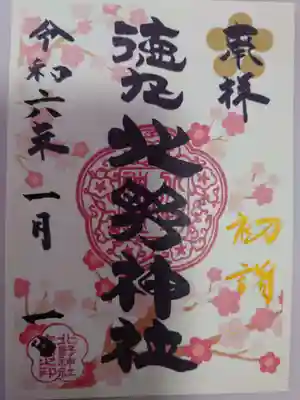 奉拝
初詣
徳丸
北野神社
令和六年 一月 一日
北野神社之印